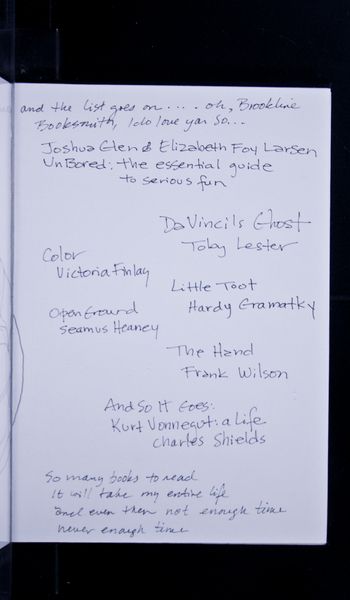 and the list goes on .... oh, Brookline
Booksmith, I do love you so...
Joshua Glen & Elizabeth Foy Larsen
UnBored: the essential guide
to serious fun
DaVinci's Ghost
Toby Lester
Color
Victoria Finlay
Little Toot
Hardy Gramatky
Open Ground
Seamus Heaney
The Hand
Frank Wilson
And So It Goes:
Kurt Vonnegut: a Life
Charles Shields
So many books to read
It will take my entire life
and even then not enough time
never enough time